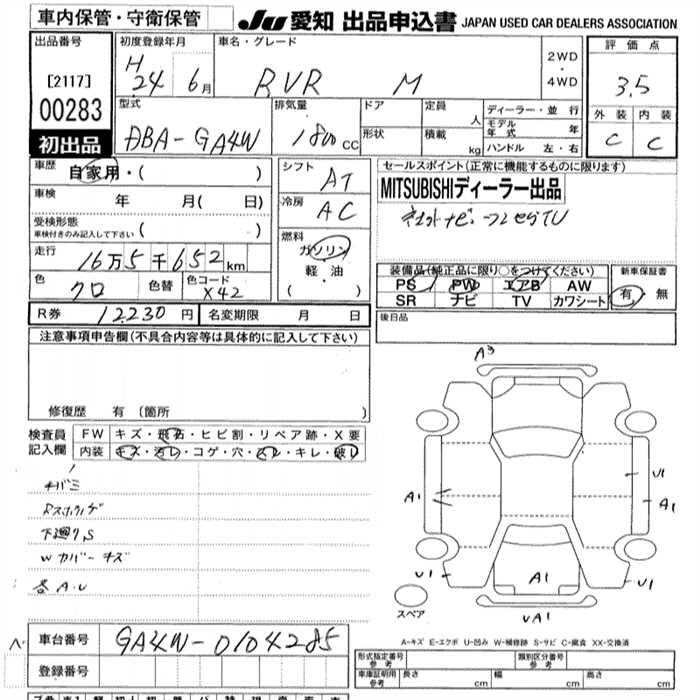 車内保管・守衛保管 JU 愛知 出品申込書 JAPAN USED CAR DEALERS ASSOCIATION
出品番号 初度登録年月 車名・グレード 2WD・4WD 評価点
[2117] H 24 年 6月 RVR M 3.5
00283 型式 排気量 ドア 定員 人 ディーラー・並行 外装 内装
初出品 DBA-GA4W 1800cc 形状 積載 kg モデル年式 年 C C
ハンドル 左・右
車歴 自家用・( ) シフト AT セールスポイント(正常に機能するものに限ります)
車検 年 月( 日) 冷房 AC MITSUBISHIディーラー出品
受検形態 車検付きのみ記入して下さい ( )
走行 16万5千652km 燃料 ガソリン・軽油・( ) 装備品(純正品に限り○をつけてください) 新車保証書
色 クロ 色替 色コード X42 PS PW エアB AW 有・無
SR ナビ TV カワシート
R券 12230円 名変期限 月 日 後日品
注意事項申告欄(不具合内容等は具体的に記入して下さい)
修復歴 有(箇所 )
検査員記入欄 FW キズ・飛石・ヒビ割・リペア跡・X要
内装 キズ・汚レ・コゲ・穴・スレ・キレ・破レ
下廻りS
Wカバーキズ
各A.U
A3
A1
U1
A1
U1
A1
U1
UA1
スペア
A-キズ E-エクボ U-凹み W-補修跡 S-サビ C-腐食 XX-交換済
車台番号 GA4W-0104285
登録番号
形式指定番号 参考 類別区分番号 参考
車庫証明用 参考 長さ cm 幅 cm 高さ cm